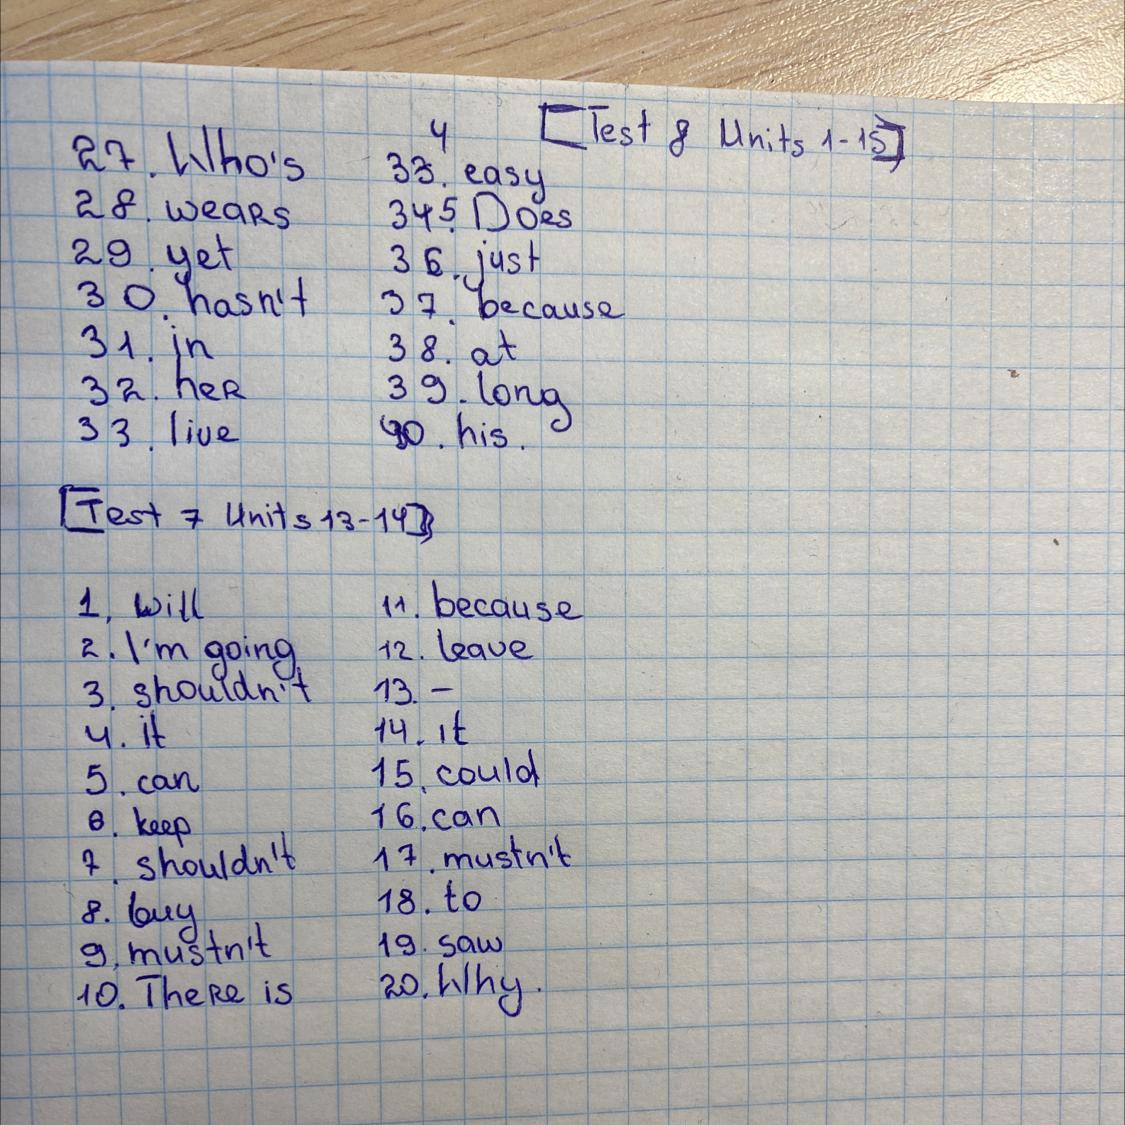 [Test 8 Units 1-15]
27. Who's
28. wears
29. yet
30. hasn't
31. in
32. her
33. live
4
33. easy
345. Does
36. just
37. because
38. at
39. long
40. his.
[Test 7 Units 13-14]
1. will
2. I'm going
3. shouldn't
4. it
5. can
6. keep
7. shouldn't
8. buy
9. mustn't
10. There is
11. because
12. leave
13. –
14. it
15. could
16. can
17. mustn't
18. to
19. saw
20. Why.